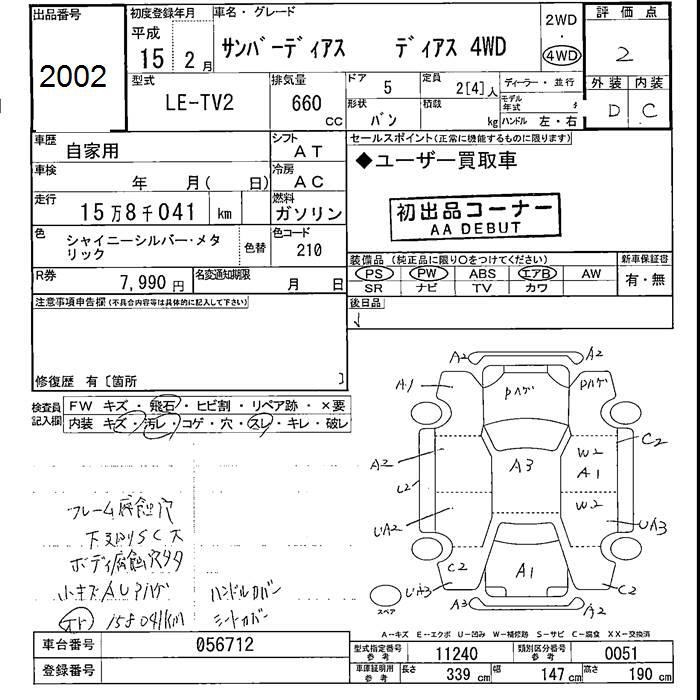 出品番号
2002
初度登録年月
平成
15 2月
車名・グレード
サンバーディアス ディアス 4WD
2WD
・
4WD
評価点
2
外装 内装
D C
型式
LE-TV2
排気量
660
CC
ドア
5
定員
2[4]人
ディーラー・並行
形状
バン
積載
kg
モデル年式
ハンドル 左・右
車歴
自家用
シフト
AT
車検
年 月( 日)
冷房
AC
走行
15万8千041 km
燃料
ガソリン
色
シャイニーシルバー・メタリック
色替
色コード
210
R券
7,990円
名変通知期限
月 日
セールスポイント(正常に機能するものに限ります)
◆ユーザー買取車
初出品コーナー
AA DEBUT
装備品(純正品に限り○をつけてください)
新車保証書
PS PW ABS エアB AW
SR ナビ TV カワ
有・無
注意事項申告欄(不具合内容等は具体的に記入して下さい)
後日品
修復歴 有〔箇所 〕
検査員記入欄
FW キズ・飛石・ヒビ割・リペア跡・×要
内装 キズ・汚レ・コゲ・穴・スレ・キレ・破レ
フレーム腐蝕穴
下廻りSC大
ボディ腐蝕穴タタ
小キズAUPハゲ
ハンドルカバー
158041km
シートカバー
A2 A2
A1 Pハゲ Pハゲ
C2
A2 A3 W2
A1
C2 W2
UA2 UA3
C2 A1
UA3 C2
A3 A2
スペア
A-キズ E-エクボ U-凹み W-補修跡 S-サビ C-腐食 XX-交換済
車台番号
056712
型式指定番号
参考
11240
類別区分番号
参考
0051
登録番号
車庫証明用
参考
長さ
339 cm
幅
147 cm
高さ
190 cm